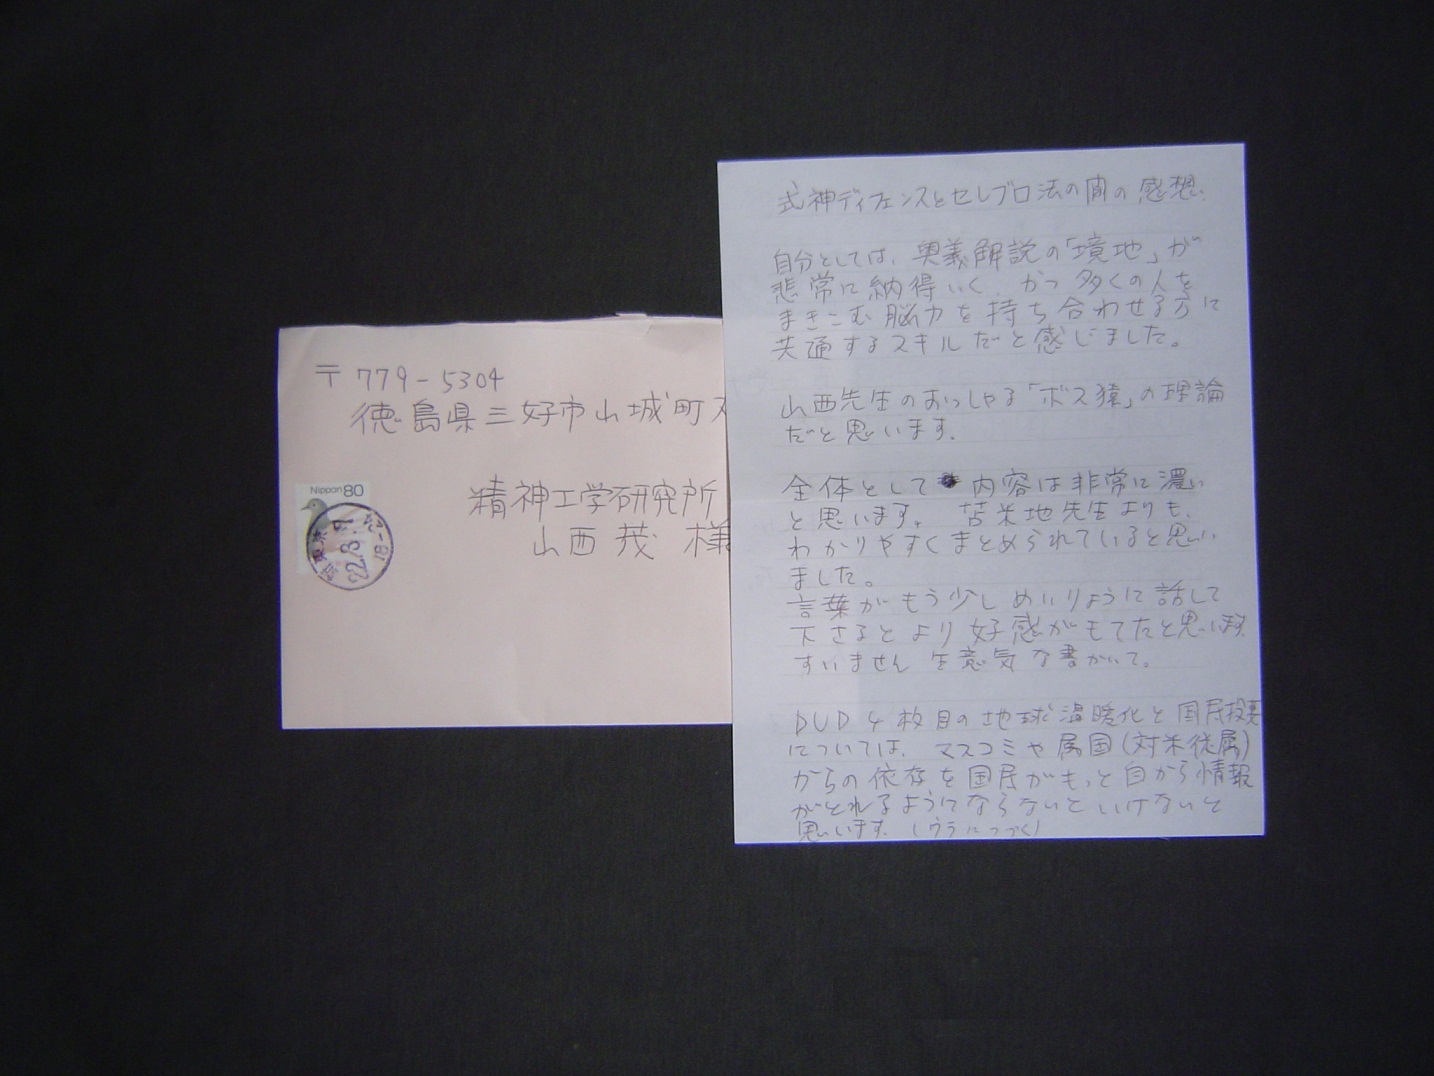 〒779-5304
徳島県三好市山城町
精神工学研究所
山西茂 様
Nippon 80
22.3.
18-
式神ディフェンスとセレブロ法の間の感想。
自分としては、奥義解説の「境地」が
非常に納得いく、かつ多くの人を
まきこむ脳力を持ち合わせる方に
共通するスキルだと感じました。
山西先生のおっしゃる「ボス猿」の理論
だと思います。
全体として 内容は非常に濃い
と思います。苫米地先生よりも、
わかりやすくまとめられていると思い
ました。
言葉がもう少しめいりょうに話して
下さるとより好感がもてたと思います。
すいません 生意気な書かいて。
DVD4枚目の地球温暖化と国民投票
については、マスコミや属国(対米従属)
からの依存を国民がもっと自から情報
がとれるようにならないといけないと
思います。(ウラにつづく)